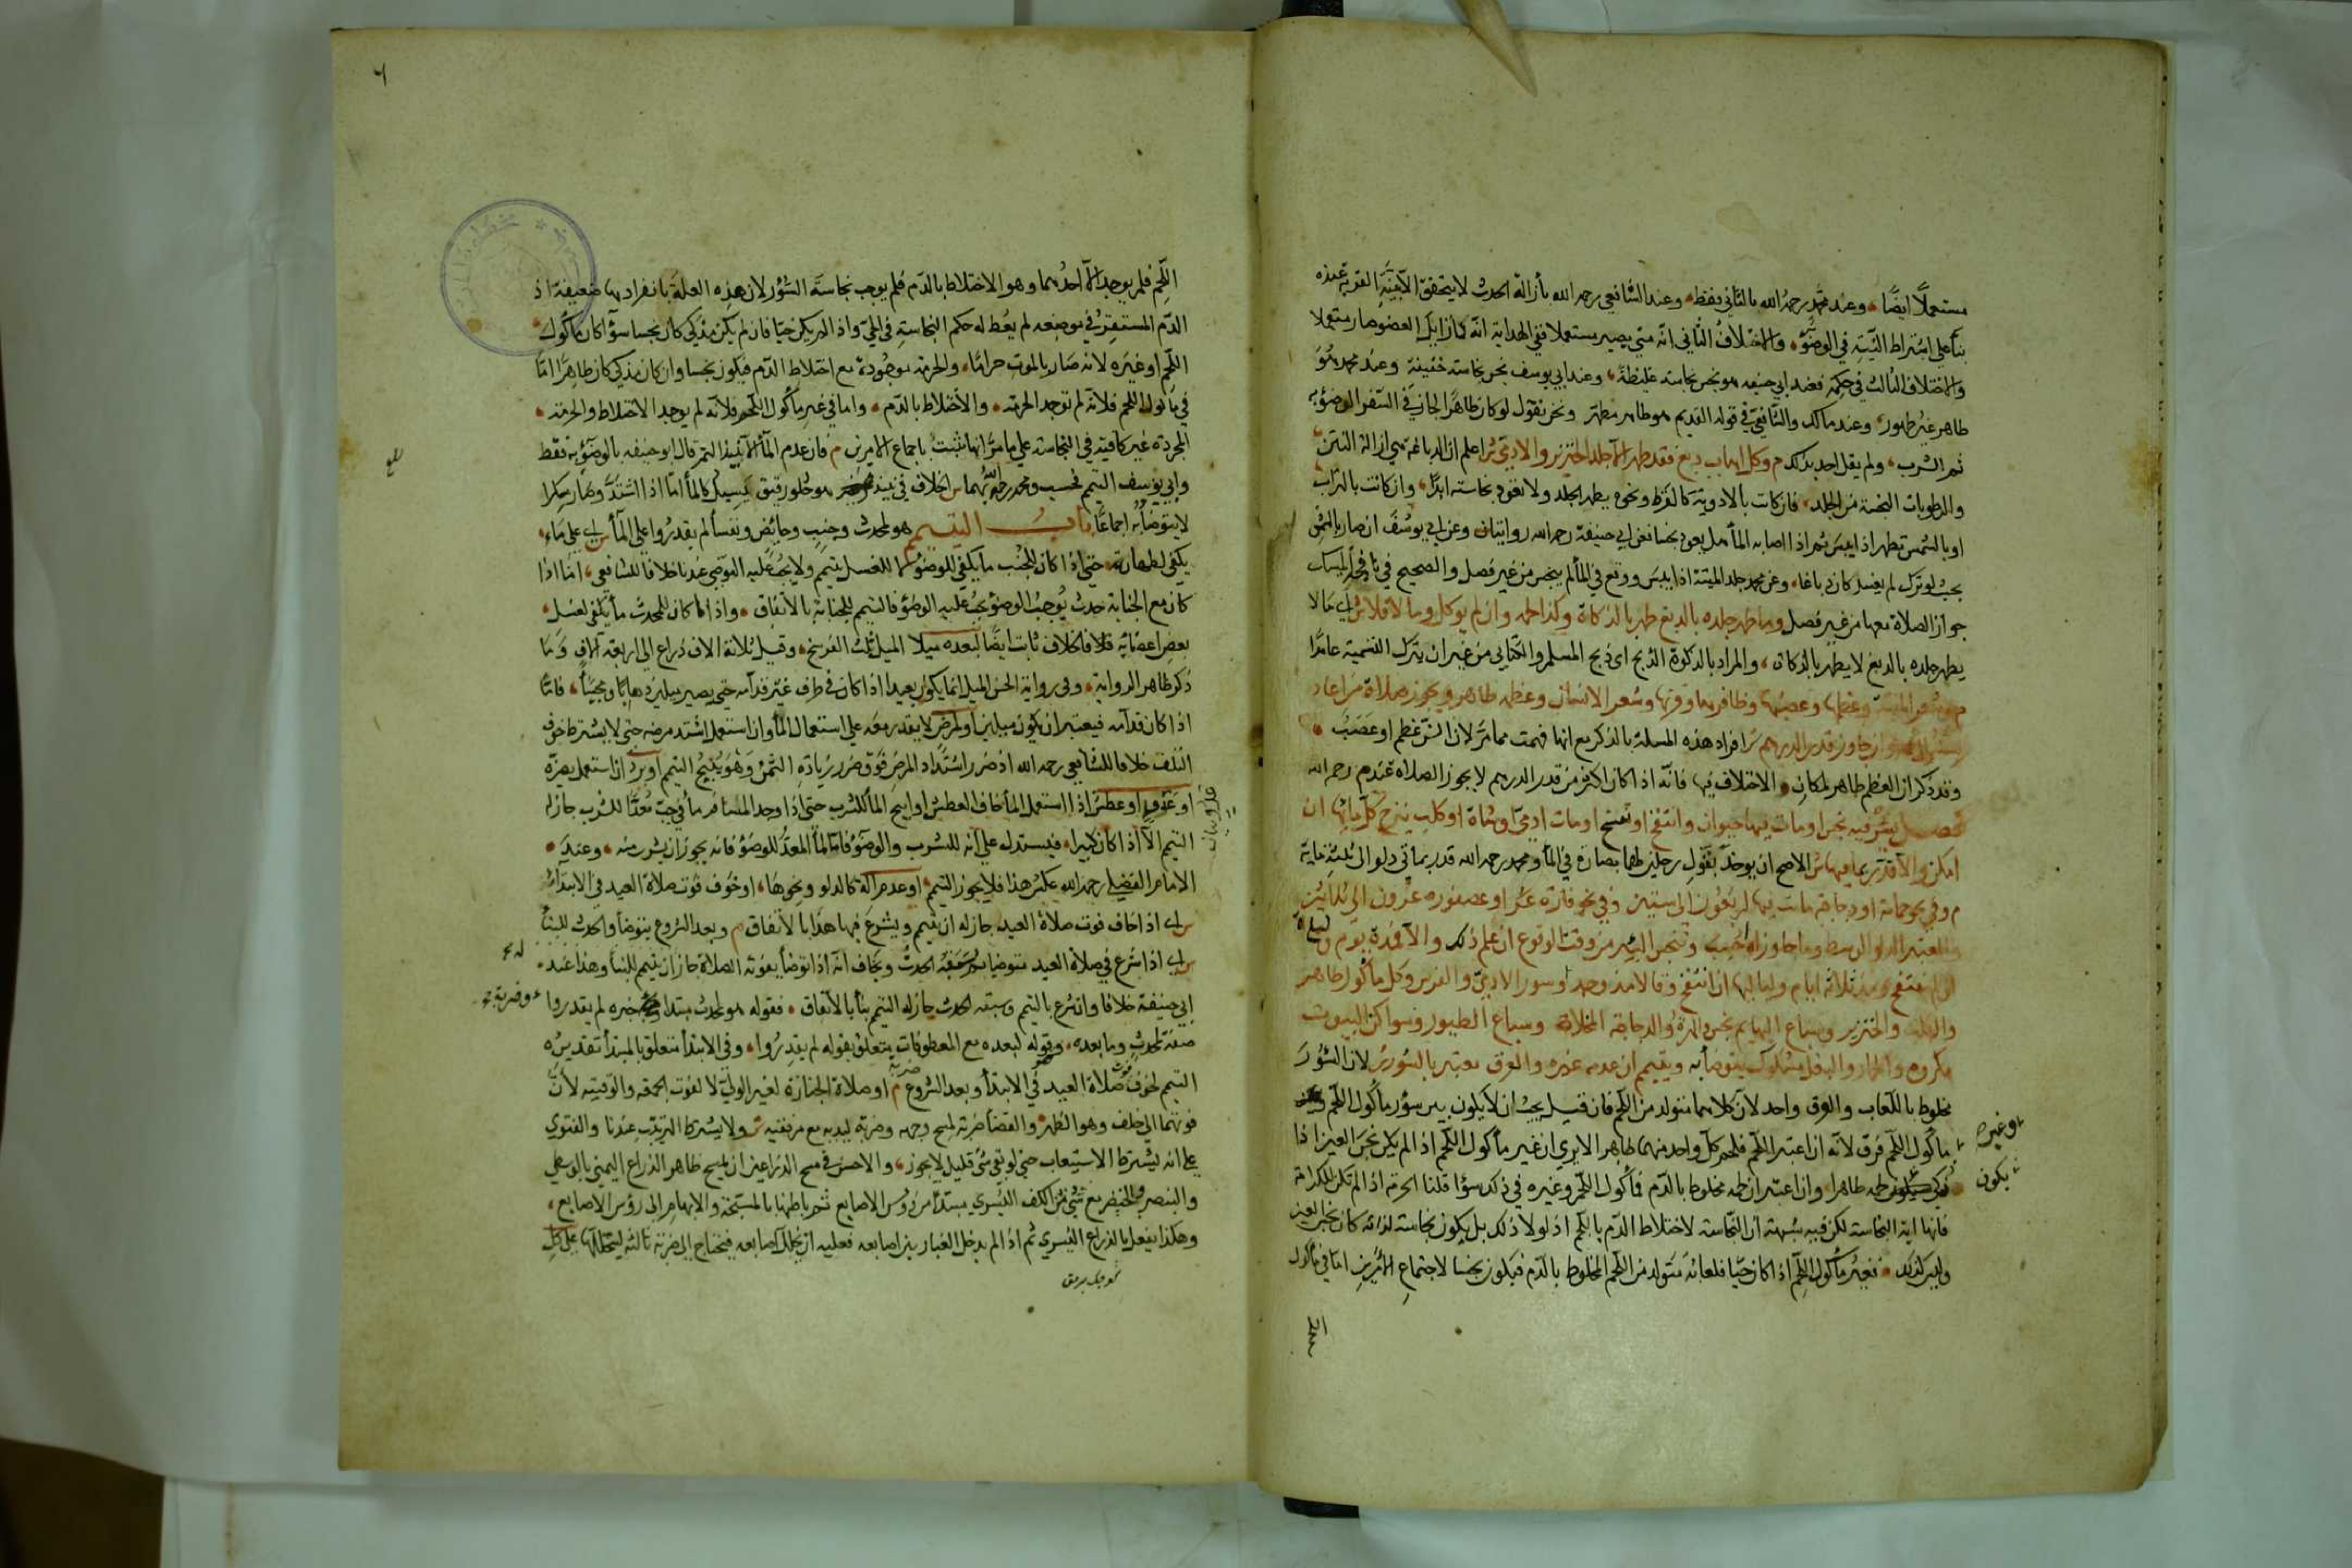 مستعملا ايضا وعند محمد رحمه الله بالثاني فقط وعند الشافعي رحمه الله بازالة الحدث لا يتحقق الا بنية القربة عنده
بناء على اشتراط النية في الوضوء والاختلاف الثاني انه متى يصير مستعملا ففي الهداية انه كما زايل العضو صار مستعملا
والاختلاف الثالث في حكمه فعند ابي حنيفة هو نجس نجاسة غليظة وعند ابي يوسف نجس نجاسة خفيفة وعند محمد هو
طاهر غير طهور وعند مالك والشافعي في قوله القديم هو طاهر مطهر ونحن نقول لو كان طاهرا لجاز في السفر الوضوء به
ثم الشرب ولم يقل احد بذلك م وكل اهاب دبغ فقد طهر الا جلد الخنزير والادمي ش اعلم ان الدباغة هي ازالة النتن
والرطوبات النجسة من الجلد فان كانت بالادوية كالقرظ ونحوه يطهر الجلد ولا تعود نجاسته ابدا وان كانت بالتراب
او بالشمس تطهر اذا يبس ثم اذا اصابه الماء هل يعود نجسا فعن ابي حنيفة رحمه الله روايتان وعن ابي يوسف ان صار بالشمس
بحيث لو ترك لم يفسد كان دباغا وعن محمد جلد الميتة اذا يبس ووقع في الماء لم ينجس من غير فصل والصحيح في نافجة المسك
جواز الصلاة معها من غير فصل وما طهر جلده بالدبغ طهر بالذكاة وكذا لحمه وان لم يوكل وما لا فلا ش اي ما لا
يطهر جلده بالدبغ لا يطهر بالذكاة والمراد بالذكوة الذبح اي ذبح المسلم والكتابي من غير ان يترك التسمية عامدا
م وشعر الميتة وعظمها وعصبها وظافرها وقرنها وشعر الانسان وعظمه طاهر ويجوز صلاة من اعاد
سنه الى فمه وان جاوز قدر الدرهم ش افراد هذه المسئلة بالذكر مع انها فهمت مما مر لان السن عظم او عصب
وقد ذكر ان العظم طاهر لمكان الاختلاف فيها فانه اذا كان اكثر من قدر الدرهم لا يجوز الصلاة عند محمد رحمه الله
فصل بئر فيه نجس او مات فيها حيوان وانتفخ او تفسخ او مات ادمي او شاة او كلب ينزح كل مائها ان
امكن والا قدر بما فيها ش الاصح ان يوخذ بقول رجلين لهما بصارة في الماء ومحمد رحمه الله قدر بمائتي دلو الى ثلثمائة
م وفي نحو حمامة او دجاجة ماتت فيها اربعون الى ستين وفي نحو فارة عشر او عصفورة عشرون الى ثلاثين
والمعتبر الدلو الوسط وما جاوزه احتسب وتنجس البئر من وقت الوقوع ان علم ذلك والا فمذ يوم وليلة
ان لم ينتفخ ومذ ثلاثة ايام ولياليها ان انتفخ وقالا مذ وجد وسور الادمي والفرس وكل ماكول طاهر
والكلب والخنزير وسباع البهايم نجس والهرة والدجاجة المخلاة وسباع الطيور وسواكن البيوت
مكروه والحمار والبغل مشكوك يتوضأ به ويتيمم ان عدم غيره والعرق معتبر بالسور ش لان السؤر
مخلوط باللعاب والعرق واحد لان كلاهما متولد من اللحم فان قيل يجب ان لا يكون بين سؤر مأكول اللحم وغير
مأكول اللحم فرق لانه ان اعتبر اللحم فلحم كل واحد منهما طاهر الا يرى ان غير مأكول اللحم اذا لم يكن نجس العين اذا
ذكي يكون لحمه طاهرا وان اعتبر ان لحمه مخلوط بالدم فمأكول اللحم وغيره في ذلك سواء قلنا الحرمة اذا لم تكن للكرامة
فانها اية النجاسة لكن فيه شبهة ان النجاسة لاختلاط الدم باللحم اذ لولا ذلك بل يكون نجاسته لذاته كان نجس العين
وليس كذلك فغير مأكول اللحم اذا كان حيا فلعابه متولد من اللحم المخلوط بالدم فيكون نجسا لاجتماع الامرين اما في مأكول
وغيره
يكون
٦
اللحم فلم يوجد الا احدهما وهو الاختلاط بالدم فلم يوجب نجاسة السؤر لان هذه العلة بانفرادها ضعيفة اذ
الدم المستقر في موضعه لم يعط له حكم النجاسة في الحي واذا لم يكن حيا فان لم يكن مذكى كان نجسا سواء كان مأكول
اللحم او غيره لانه صار بالموت حراما والحرمة موجودة مع اختلاط الدم فيكون نجسا وان كان مذكى كان طاهرا اما
في مأكول اللحم فلانه لم توجد الحرمة والاختلاط بالدم واما في غير مأكول اللحم فلانه لم يوجد الاختلاط والحرمة
المجردة غير كافية في النجاسة على ما مر انها تثبت باجماع الامرين م فان عدم الماء الا نبيذ التمر قال ابو حنيفة بالوضوء به فقط
وابي يوسف التيمم فحسب ومحمد رحمه الله بهما ش الخلاف في نبيذ هو حلو رقيق يسيل كالماء اما اذا اشتد وصار مسكرا
لا يتوضأ به اجماعا باب التيمم هو لمحدث وجنب وحايض ونفساء لم يقدروا على الماء ش اي على ماء
يكفي لطهارته حتى اذا كان للجنب ما يكفي للوضوء لا للغسل يتيمم ولا يجب عليه التوضي عندنا خلافا للشافعي اما اذا
كان مع الجنابة حدث يوجب الوضوء يجب عليه الوضوء فالتيمم للجنابة بالاتفاق واذا كان للمحدث ما يكفي لغسل
بعض اعضائه فالخلاف ثابت ايضا لبعده ميلا الميل ثلث الفرسخ وقيل ثلاثة الاف ذراع الى اربعة الاف وما
ذكر ظاهر الرواية وفي رواية الحسن الميل انما يكون بعيدا اذا كان في طرف غير قدامه حتى يصير ميلين ذهابا ومجيئا فاما
اذا كان قدامه فيعتبر ان يكون ميلين او لمرض لا يقدر معه على استعمال الماء وان استعمل اشتد مرضه حتى لا يشترط خوف
التلف خلافا للشافعي رحمه الله اذ ضرر اشتداد المرض فوق ضرر زيادة الثمن وهو يبيح التيمم او برد ان استعمل يضره
او عدو او عطش اذا استعمل الماء خاف العطش او ابيح الماء للشرب حتى اذا وجد المسافر ماء في جب معدا للشرب جاز له
التيمم الا اذا كان كثيرا فيستدل على انه للشرب والوضوء فاما الماء المعد للوضوء فانه يجوز ان يشرب منه وعند
الامام الفضلي رحمه الله عكس هذا فلا يجوز التيمم او عدم آلة كالدلو ونحوها او خوف فوت صلاة العيد في الابتداء
ش اي اذا خاف فوت صلاة العيد جاز له ان يتيمم ويشرع فيها هذا بالاتفاق م وبعد الشروع متوضأ والحدث للبناء
ش اي اذا شرع في صلاة العيد متوضيا وسبقه الحدث ويخاف انه اذا توضأ يفوته الصلاة جاز ان يتيمم للبناء وهذا عند
ابي حنيفة خلافا وان شرع بالتيمم وسبقه الحدث جاز له التيمم بناء بالاتفاق فقوله هو لمحدث مبتدا خبره لم يقدروا
صفة لمحدث وما بعده وقوله لبعده مع المعطوفات يتعلق بقوله لم يقدروا وفي الابتداء متعلق بالمبتدأ تقديره
التيمم لخوف فوت صلاة العيد في الابتداء وبعد الشروع م او صلاة الجنازة لغير الولي لا لفوت الجمعة والوقتية لان
فوتهما الى خلف وهو الظهر والقضاء ضربة لمسح وجهه وضربة ليديه مع مرفقيه ش ولا يشترط الترتيب عندنا والفتوى
على انه يشترط الاستيعاب حتى لو بقي شئ قليل لا يجوز والاحسن في مسح الذراعين ان يمسح ظاهر الذراع اليمنى بالوسطى
والبنصر والخنصر مع شئ من الكف اليسرى مبتدئا من رؤس الاصابع ثم باطنها بالمسبحة والابهام الى رؤس الاصابع
وهكذا يفعل بالذراع اليسرى ثم اذا لم يدخل الغبار بين اصابعه فعليه ان يخلل اصابعه فيحتاج الى ضربة ثالثة ليتخللها على كل